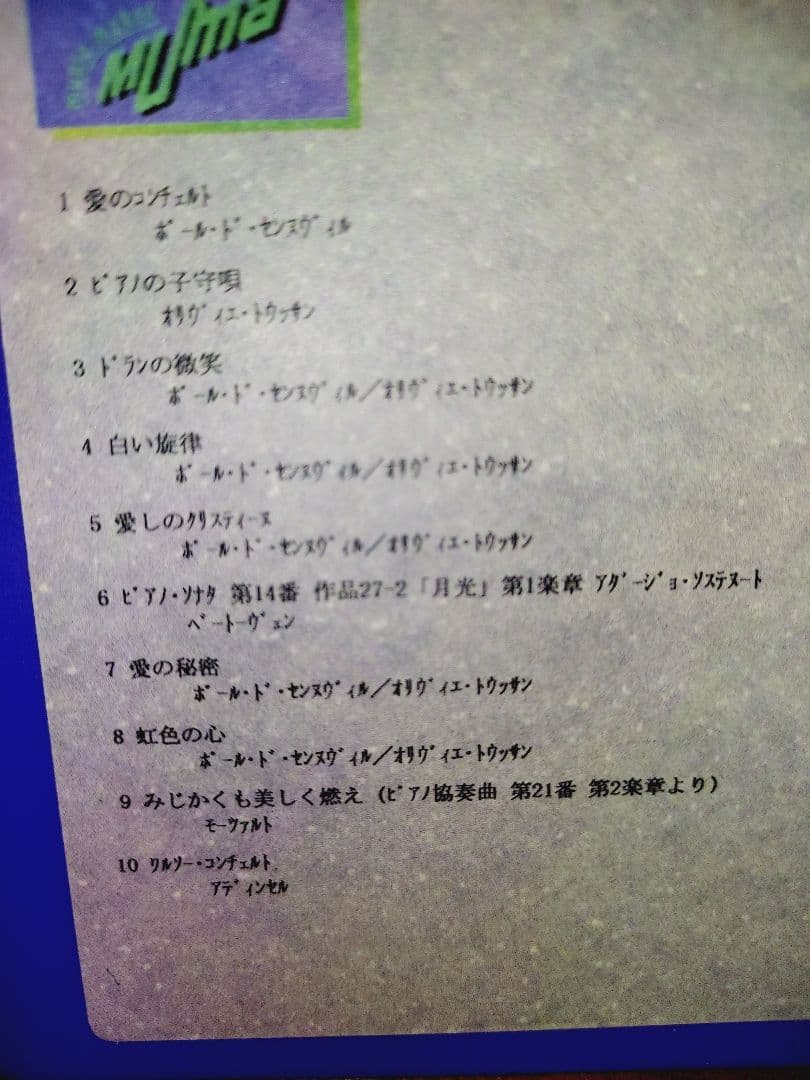 MUJma
1 愛のｺﾝﾁｪﾙﾄ
ﾎﾟｰﾙ･ﾄﾞ･ｾﾝﾇｳﾞｨﾙ
2 ﾋﾟｱﾉの子守唄
ｵﾘｳﾞｨｴ･ﾄｩｯｻﾝ
3 ﾄﾞﾗﾝの微笑
ﾎﾟｰﾙ･ﾄﾞ･ｾﾝﾇｳﾞｨﾙ／ｵﾘｳﾞｨｴ･ﾄｩｯｻﾝ
4 白い旋律
ﾎﾟｰﾙ･ﾄﾞ･ｾﾝﾇｳﾞｨﾙ／ｵﾘｳﾞｨｴ･ﾄｩｯｻﾝ
5 愛しのｸﾘｽﾃｨｰﾇ
ﾎﾟｰﾙ･ﾄﾞ･ｾﾝﾇｳﾞｨﾙ／ｵﾘｳﾞｨｴ･ﾄｩｯｻﾝ
6 ﾋﾟｱﾉ･ｿﾅﾀ 第14番 作品27-2「月光」第1楽章 ｱﾀﾞｰｼﾞｮ･ｿｽﾃﾇｰﾄ
ﾍﾞｰﾄｰｳﾞｪﾝ
7 愛の秘密
ﾎﾟｰﾙ･ﾄﾞ･ｾﾝﾇｳﾞｨﾙ／ｵﾘｳﾞｨｴ･ﾄｩｯｻﾝ
8 虹色の心
ﾎﾟｰﾙ･ﾄﾞ･ｾﾝﾇｳﾞｨﾙ／ｵﾘｳﾞｨｴ･ﾄｩｯｻﾝ
9 みじかくも美しく燃え (ﾋﾟｱﾉ協奏曲 第21番 第2楽章より)
ﾓｰﾂｧﾙﾄ
10 ﾜﾙｿｰ･ｺﾝﾁｪﾙﾄ
ｱﾃﾞｨﾝｾﾙ